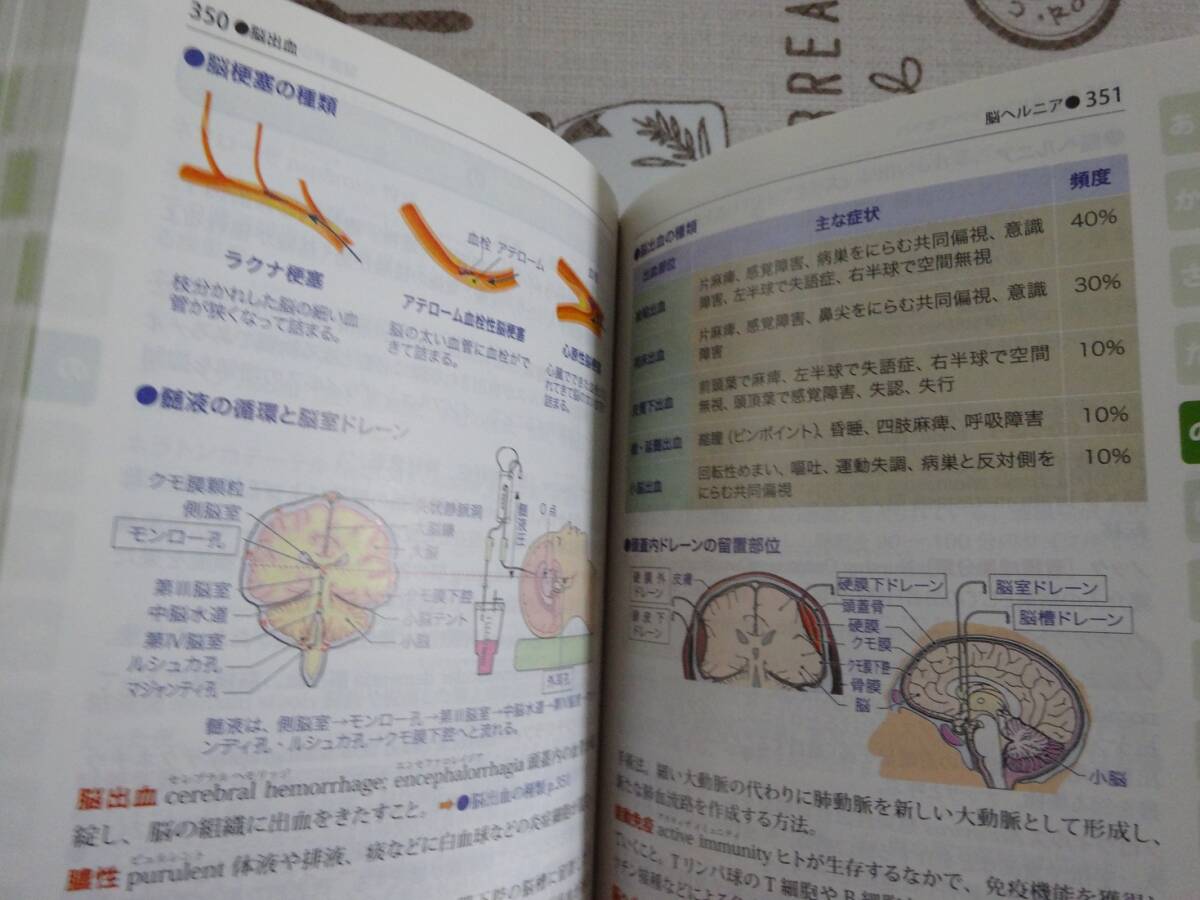 350●脳出血
●脳梗塞の種類
血栓 アテローム
ラクナ梗塞
枝分かれした脳の細い血
管が狭くなって詰まる。
アテローム血栓性脳梗塞
脳の太い血管に血栓がで
きて詰まる。
心原性脳
心臓でできた
れてきて脳の
詰まる。
●髄液の循環と脳室ドレーン
クモ膜顆粒
側脳室
モンロー孔
第III脳室
中脳水道
第IV脳室
ルシュカ孔
マジャンディ孔
矢状静脈洞
大脳鎌
大脳
クモ膜下腔
小脳テント
小脳
髄液圧
0点
外耳孔
髄液は、側脳室→モンロー孔→第III脳室→中脳水道→第IV脳室
ンディ孔・ルシュカ孔→クモ膜下腔へと流れる。
セレブラル ヘモリッジ エンセファロレイジア
脳出血 cerebral hemorrhage; encephalorrhagia 頭蓋内の血管
綻し、脳の組織に出血をきたすこと。➡●脳出血の種類p.351
ピュルレント
膿性 purulent 体液や排液、痰などに白血球などの炎症細胞
脳ヘルニア●351
●脳出血の種類
出血部位 主な症状 頻度
出血 片麻痺、感覚障害、病巣をにらむ共同偏視、意識 40%
障害、左半球で失語症、右半球で空間無視
出血 片麻痺、感覚障害、鼻尖をにらむ共同偏視、意識 30%
障害
皮質下出血 前頭葉で麻痺、左半球で失語症、右半球で空間 10%
無視、頭頂葉で感覚障害、失認、失行
出血 縮瞳(ピンポイント)、昏睡、四肢麻痺、呼吸障害 10%
小脳出血 回転性めまい、嘔吐、運動失調、病巣と反対側を 10%
にらむ共同偏視
●頭蓋内ドレーンの留置部位
硬膜外
ドレーン
皮膚
皮下
ドレーン
硬膜下ドレーン
頭蓋骨
硬膜
クモ膜
クモ膜下腔
骨膜
脳
脳室ドレーン
脳槽ドレーン
小脳
手術法。細い大動脈の代わりに肺動脈を新しい大動脈として形成し、
新たな肺血流路を作成する方法。
アクティブイミュニティ
能動免疫 active immunity ヒトが生存するなかで、免疫機能を獲得し
ていくこと。Tリンパ球のT細胞やB細胞
クチン接種などによる
あ
か
さ
た
の